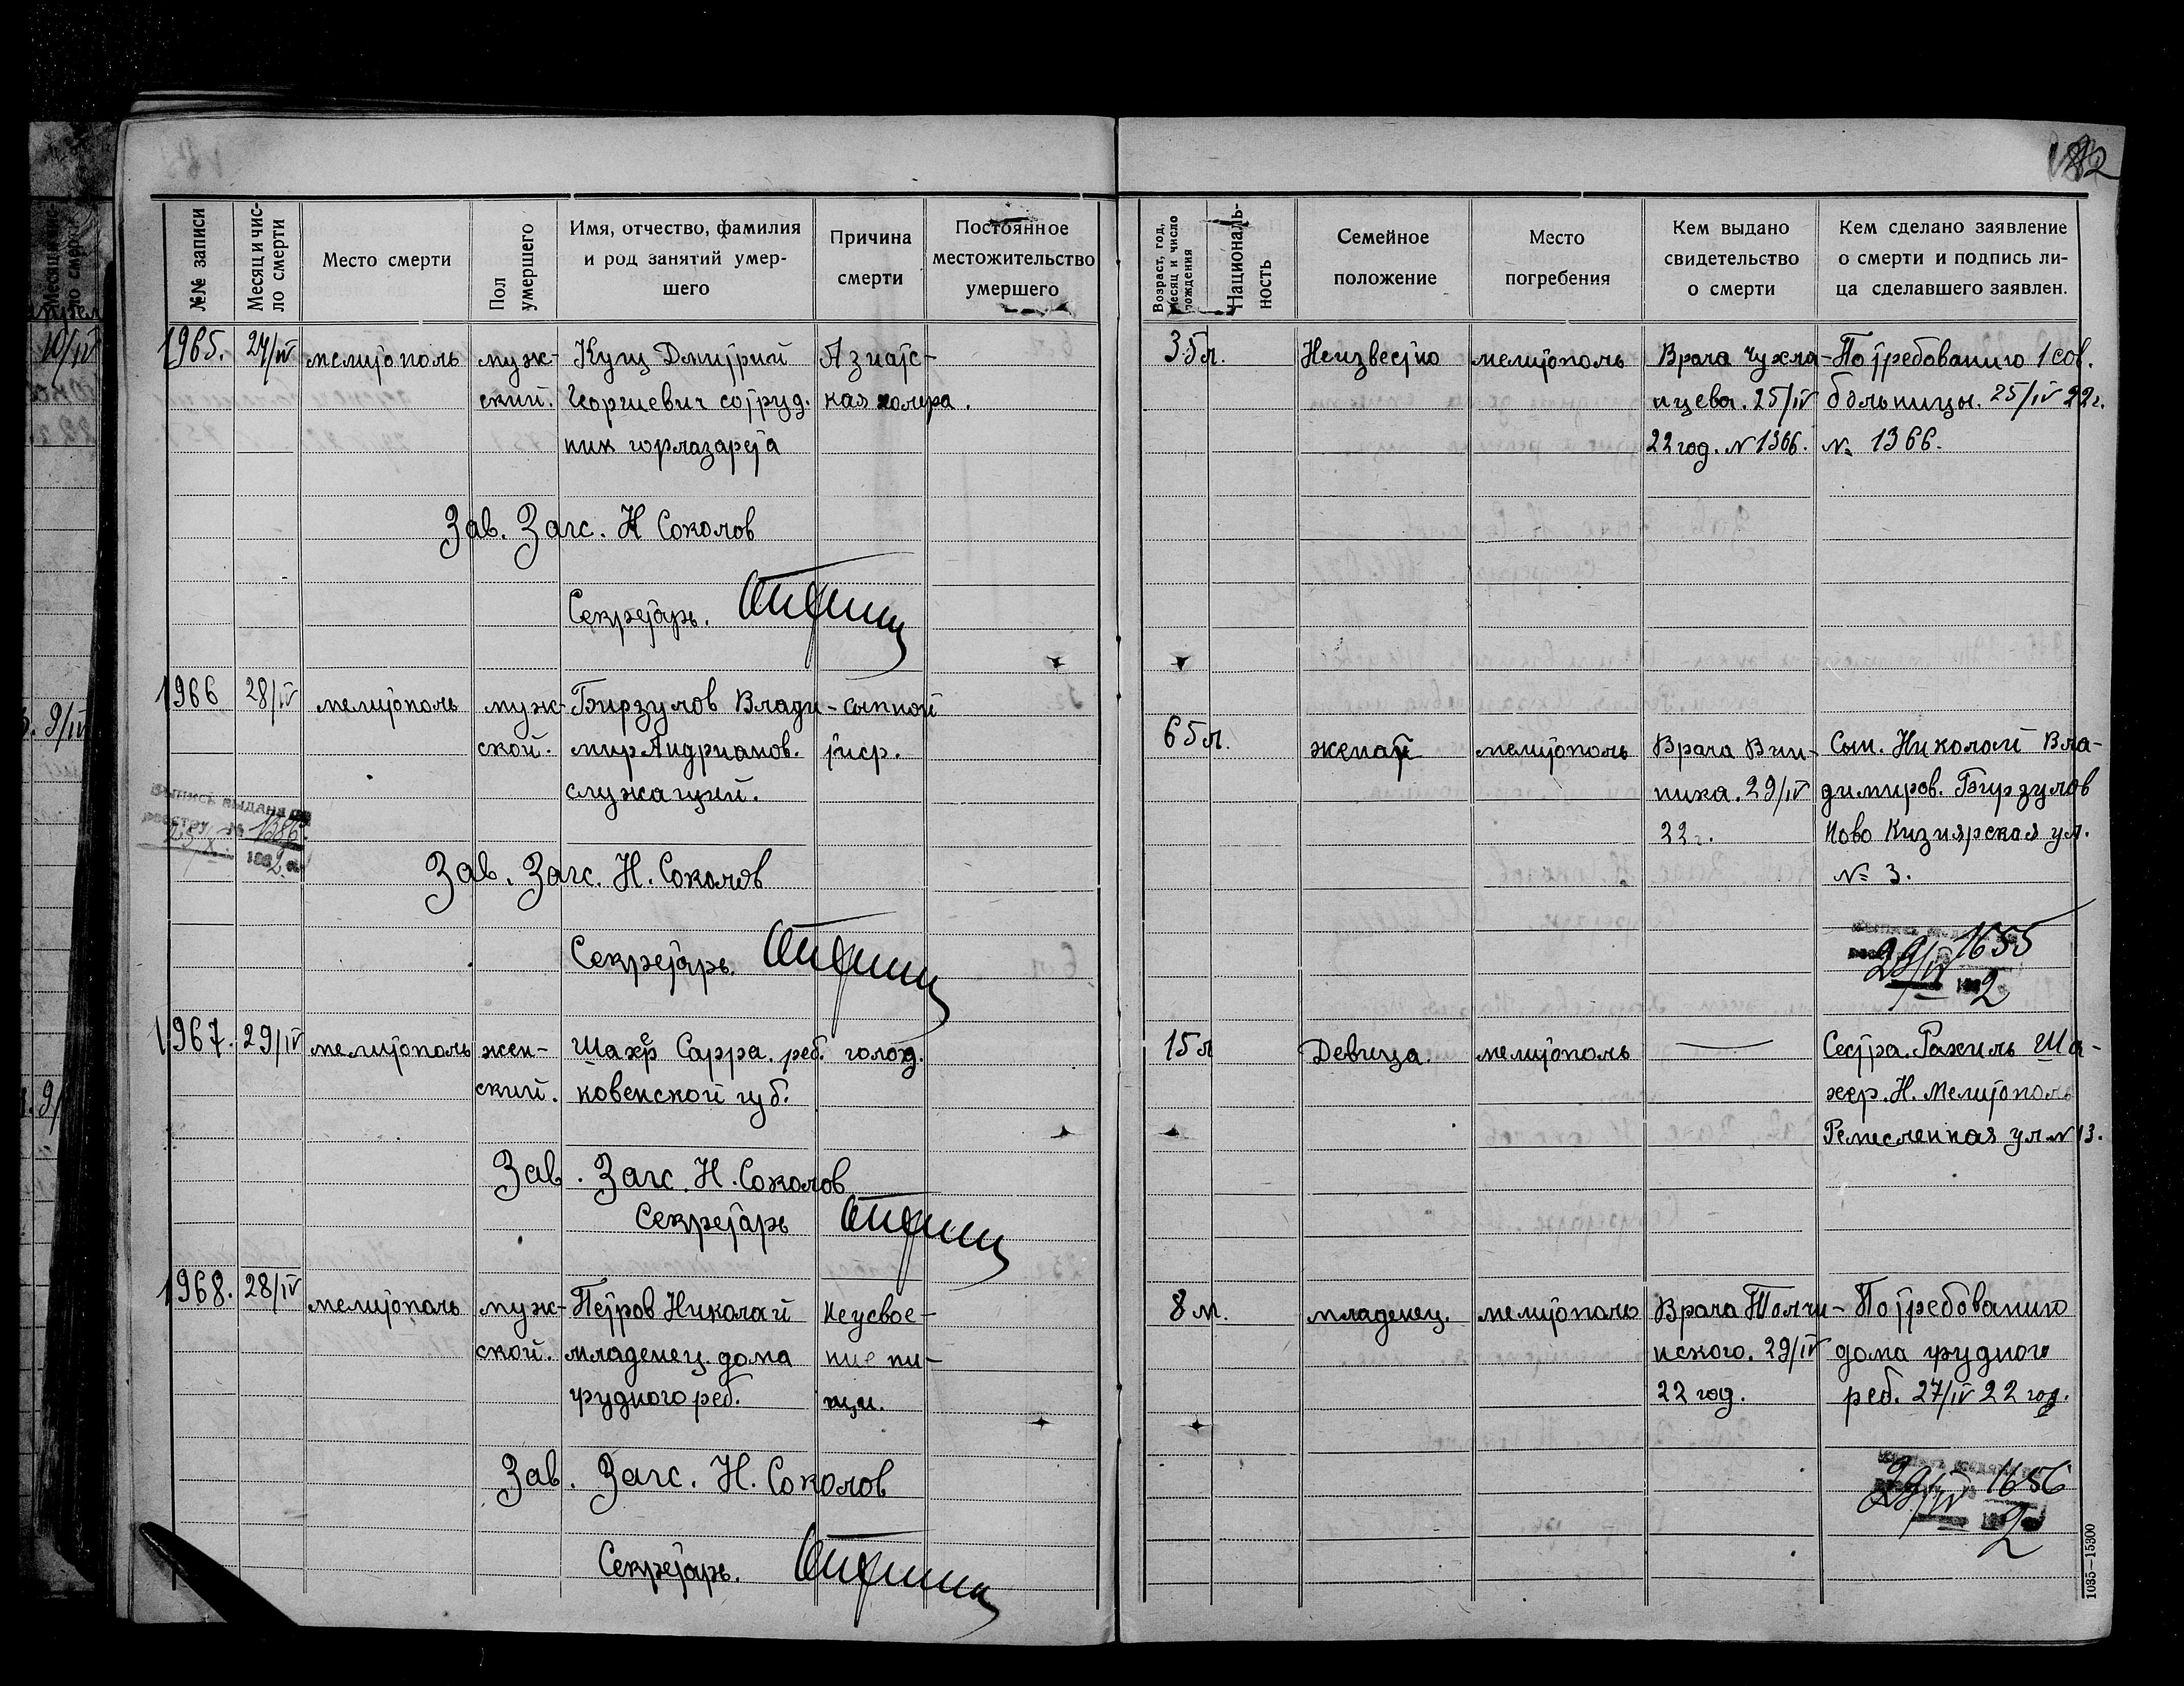 182
№№ записи
Месяц и чис-
ло смерти
Место смерти
Пол
умершего
Имя, отчество, фамилия
и род занятий умер-
шего
Причина
смерти
Постоянное
местожительство
умершего
Возраст, год,
месяц и число
рождения
Националь-
ность
Семейное
положение
Место
погребения
Кем выдано
свидетельство
о смерти
Кем сделано заявление
о смерти и подпись ли-
ца сделавшего заявлен.
1965. 24/IV мелитополь муж- Кущ Дмитрий Азиатс- 35 л. Неизвестно мелитополь Врача Чухла- По требованию 1 сов.
ский. Георгиевич сотруд. кая холера. нцева. 25/IV больницы. 25/IV 22 г.
ник горлазарета 22 год. N 1366. № 1366.
Зав. Загс. Н Соколов
Секретарь.
1966 28/IV мелитополь муж- Бирзулов Влади- сыпной 65 л. женат мелитополь Врача Вин- Сын. Николай Вла-
ской. мир Андрианов. тиф. ника. 29/IV димиров. Бирзулов
служащий. 22 г. Ново Кизиярская ул.
№ 3.
Выпись выдана по
реестру № 1386
192
Зав. Загс. Н. Соколов
Секретарь.
29/IV 1655
192 2
1967. 29/IV мелитополь жен- Шахер Сарра. реб. голод. 15 л Девица. мелитополь — Сестра. Рахиль Ша-
ский. ковенской губ. хер. Н. Мелитополь
Ремесленная ул N 13.
Зав. Загс. Н. Соколов
Секретарь
1968. 28/IV мелитополь муж- Петров Николай Неусвое- 8 м. младенец. мелитополь Врача Толчи- По требованию
ской. младенец. дома ние пи- нского. 29/IV дома грудного
грудного реб. щи. 22 год. реб. 27/IV 22 год.
Зав. Загс. Н. Соколов
Секретарь.
29/IV 1656
192 2
1035—15300